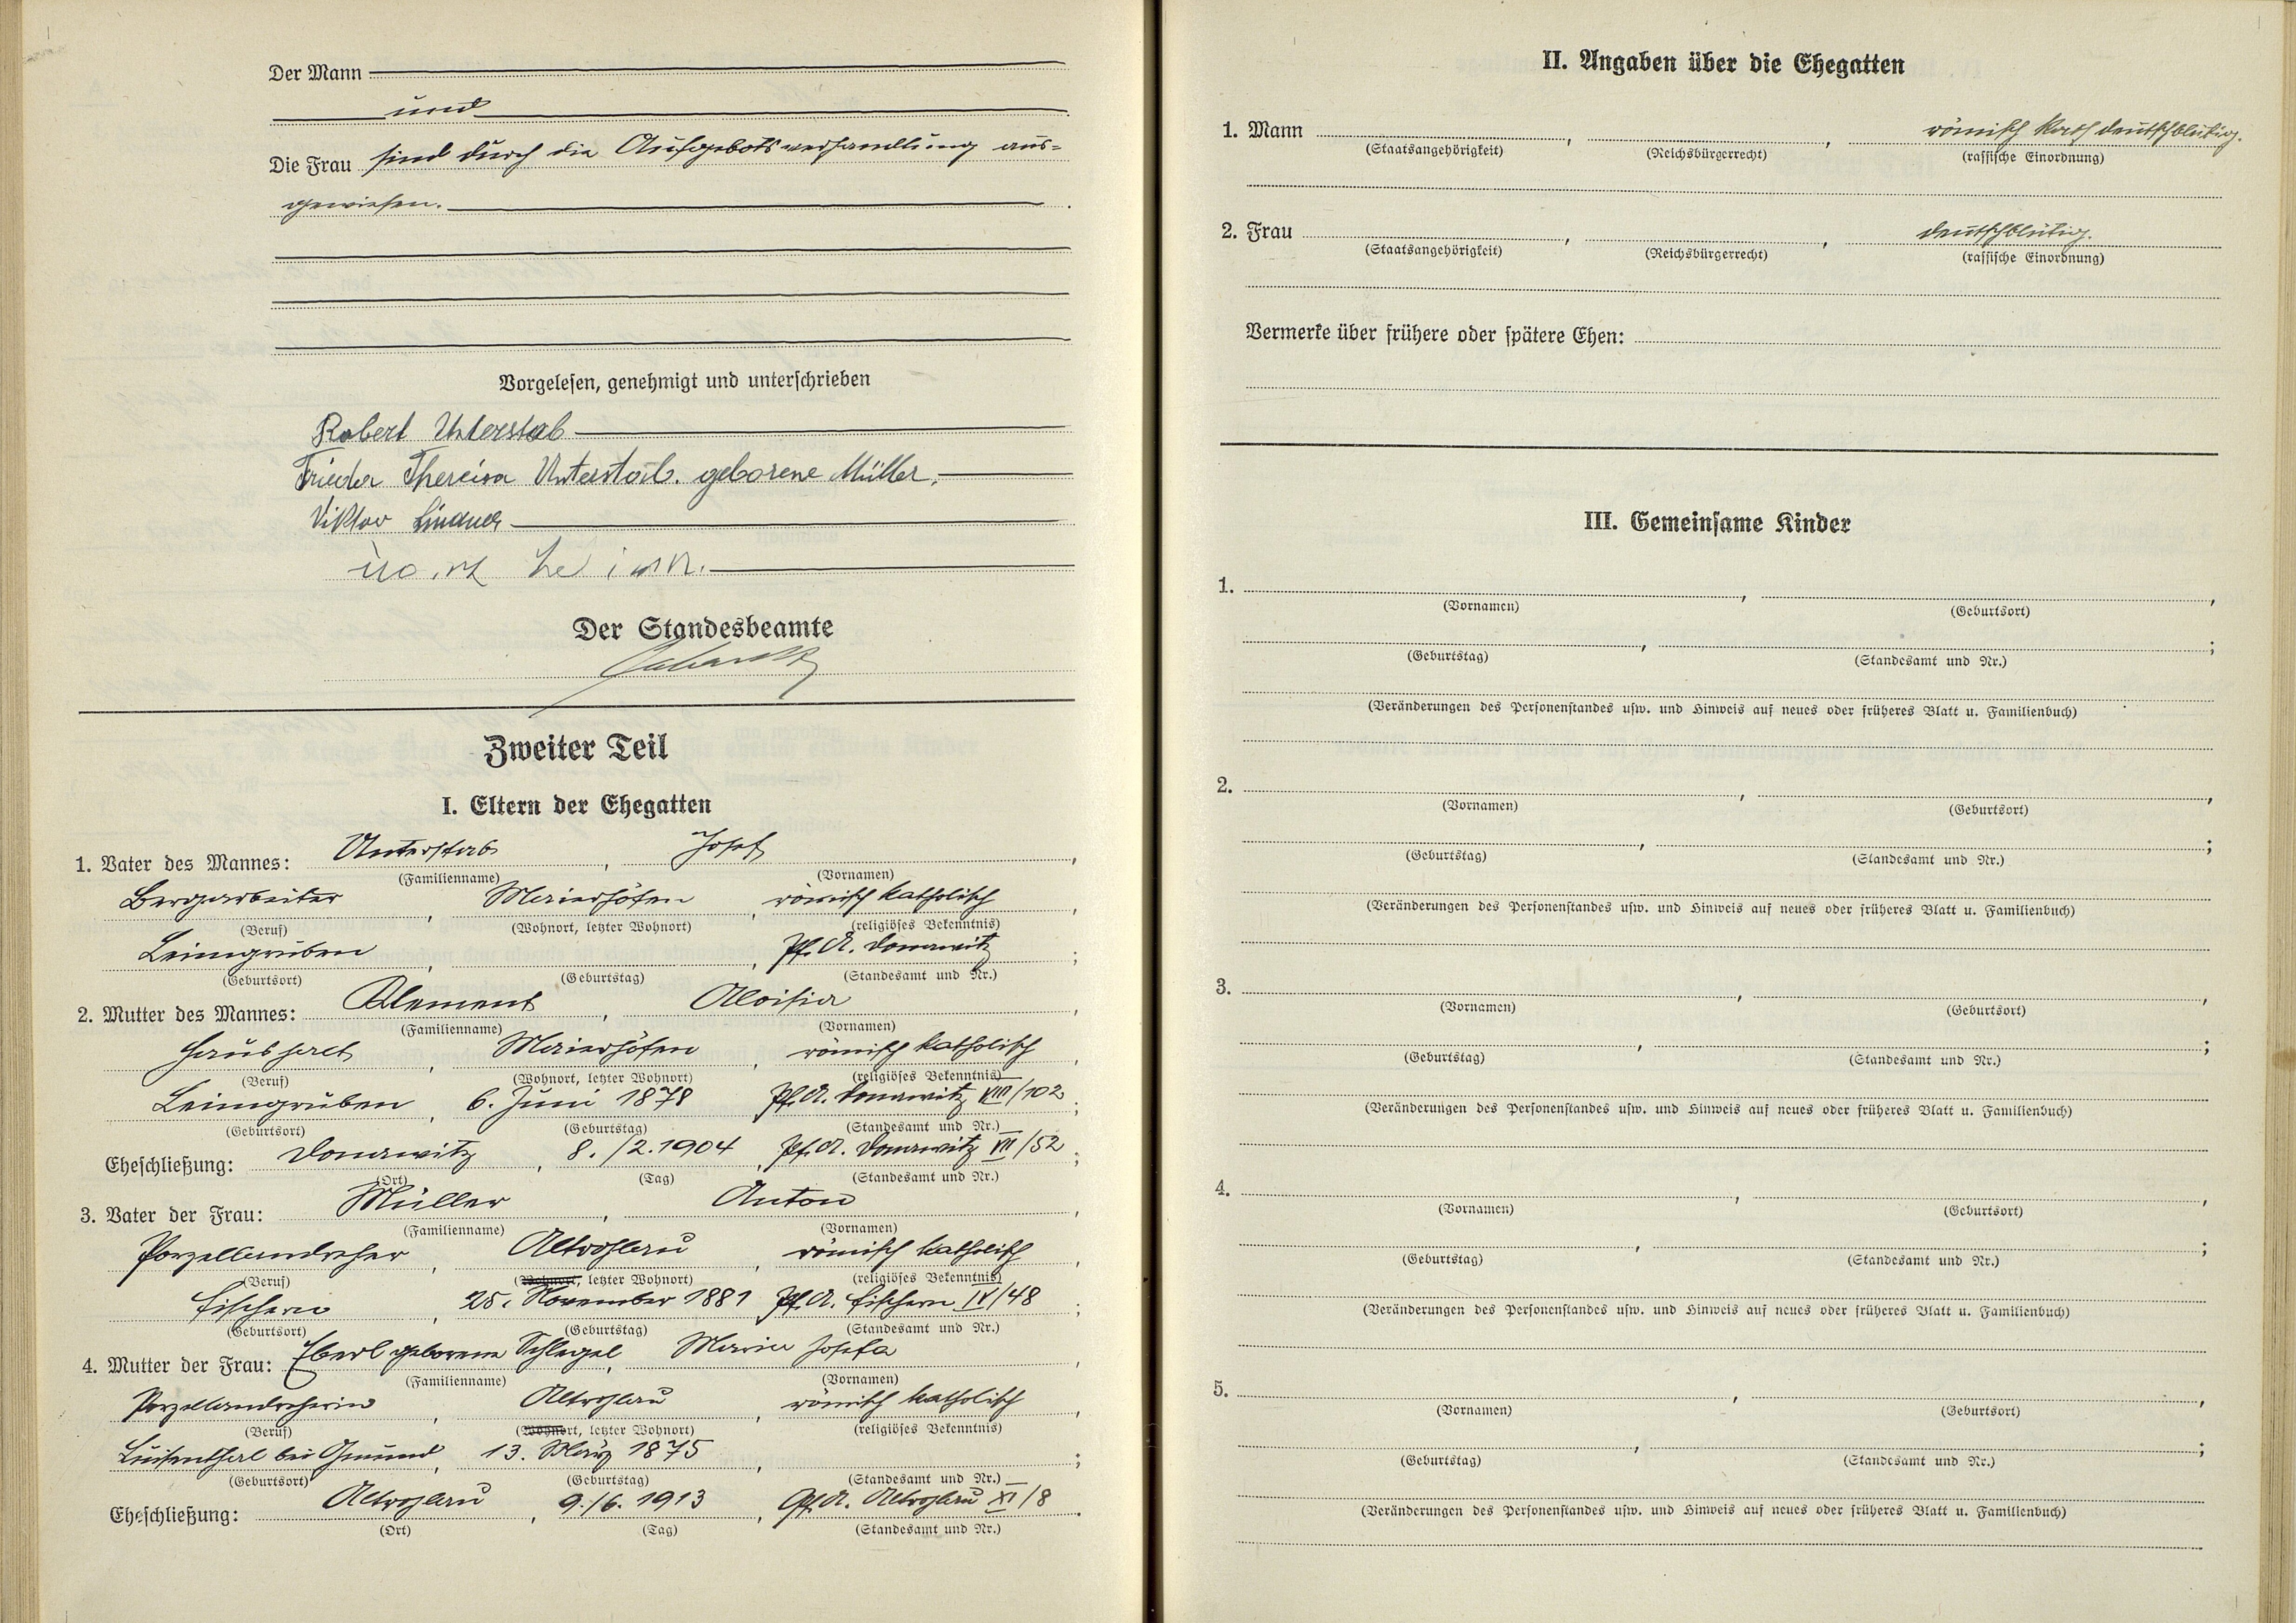 Der Mann
und
Die Frau sind durch die Aufgebotsverhandlung aus=
gewiesen.
Vorgelesen, genehmigt und unterschrieben
Robert Unterstab
Frieda Theresia Unterstab. geborene Müller.
Viktor Lindner
Der Standesbeamte
Zweiter Teil
I. Eltern der Ehegatten
1. Vater des Mannes: Unterstab, Josef,
(Familienname) (Vornamen)
Bergarbeiter, Maierhöfen, römisch katholisch,
(Beruf) (Wohnort, letzter Wohnort) (religiöses Bekenntnis)
Leimgruben, , Pf.A. Donawitz;
(Geburtsort) (Geburtstag) (Standesamt und Nr.)
2. Mutter des Mannes: Klement, Aloisia,
(Familienname) (Vornamen)
Haushalt, Maierhöfen, römisch katholisch,
(Beruf) (Wohnort, letzter Wohnort) (religiöses Bekenntnis)
Leimgruben, 6. Juni 1878, Pf.A. Donawitz VIII/102;
(Geburtsort) (Geburtstag) (Standesamt und Nr.)
Eheschließung: Donawitz, 8./2.1904, Pf.A. Donawitz VII/52;
(Ort) (Tag) (Standesamt und Nr.)
3. Vater der Frau: Müller, Anton,
(Familienname) (Vornamen)
Porzellandreher, Altrohlau, römisch katholisch,
(Beruf) (Wohnort, letzter Wohnort) (religiöses Bekenntnis)
Fischern, 25. November 1881, Pf.A. Fischern IV/48;
(Geburtsort) (Geburtstag) (Standesamt und Nr.)
4. Mutter der Frau: Eberl geborene Schlegel, Maria Josefa,
(Familienname) (Vornamen)
Porzellandreherin, Altrohlau, römisch katholisch,
(Beruf) (Wohnort, letzter Wohnort) (religiöses Bekenntnis)
Luisenthal bei Gmünd, 13. März 1875, ;
(Geburtsort) (Geburtstag) (Standesamt und Nr.)
Eheschließung: Altrohlau, 9./6. 1913, Pf.A. Altrohlau XI/8.
(Ort) (Tag) (Standesamt und Nr.)
II. Angaben über die Ehegatten
1. Mann , , römisch kath deutschblütig.
(Staatsangehörigkeit) (Reichsbürgerrecht) (rassische Einordnung)
2. Frau , , deutschblütig.
(Staatsangehörigkeit) (Reichsbürgerrecht) (rassische Einordnung)
Vermerke über frühere oder spätere Ehen:
III. Gemeinsame Kinder
1. , ,
(Vornamen) (Geburtsort)
, ;
(Geburtstag) (Standesamt und Nr.)
(Veränderungen des Personenstandes usw. und Hinweis auf neues oder früheres Blatt u. Familienbuch)
2. , ,
(Vornamen) (Geburtsort)
, ;
(Geburtstag) (Standesamt und Nr.)
(Veränderungen des Personenstandes usw. und Hinweis auf neues oder früheres Blatt u. Familienbuch)
3. , ,
(Vornamen) (Geburtsort)
, ;
(Geburtstag) (Standesamt und Nr.)
(Veränderungen des Personenstandes usw. und Hinweis auf neues oder früheres Blatt u. Familienbuch)
4. , ,
(Vornamen) (Geburtsort)
, ;
(Geburtstag) (Standesamt und Nr.)
(Veränderungen des Personenstandes usw. und Hinweis auf neues oder früheres Blatt u. Familienbuch)
5. , ,
(Vornamen) (Geburtsort)
, ;
(Geburtstag) (Standesamt und Nr.)
(Veränderungen des Personenstandes usw. und Hinweis auf neues oder früheres Blatt u. Familienbuch)